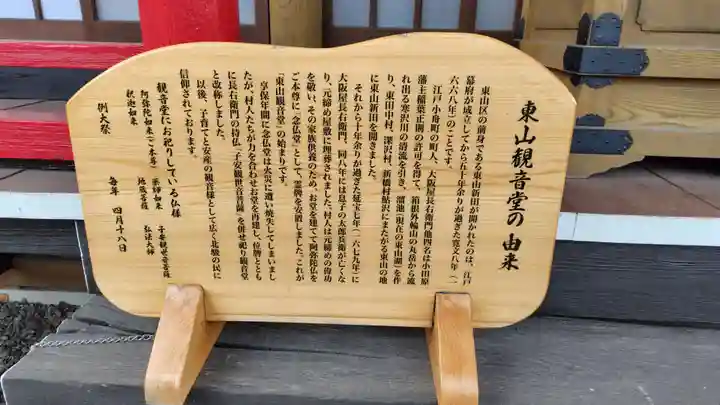 東山観音堂の由来
東山区の前身である東山新田が開かれたのは、江戸
幕府が成立してから五十年余りが過ぎた寛文八年（一
六六八年）のことです。
江戸小舟町の町人、大阪屋長右衛門他四名は小田原
藩主稲葉正則の許可を得て、箱根外輪山の丸岳から流
れ出る寒沢川の清流を引き、溜池（現在の東山湖）を作
り、東田中村、深沢村、新橋村鮎沢にまたがる東山の地
に東山新田を開きました。
それから十年余りが過ぎた延宝七年（一六七九年）に
大阪屋長右衛門、同八年には息子の太郎兵衛が亡くな
り、元締め屋敷に埋葬されました。村人は元締めの偉功
を敬い、その家族供養のため、お堂を建てて阿弥陀仏を
ご本尊に「念仏堂」として、霊牌を安置しました。これが
「東山観音堂」の始まりです。
享保年間に念仏堂は火災に遭い焼失してしまいまし
たが、村人たちが力を合わせお堂を再建し、位牌ととも
に長右衛門の持仏「子安観世音菩薩」を併せ祀り観音堂
と改称しました。
以後、子育てと安産の観音様として広く北駿の民に
信仰されております。
観音堂にお祀りしている仏様
阿弥陀如来（ご本尊） 薬師如来 子安観世音菩薩
釈迦如来 地蔵菩薩 弘法大師
例大祭 毎年 四月十八日